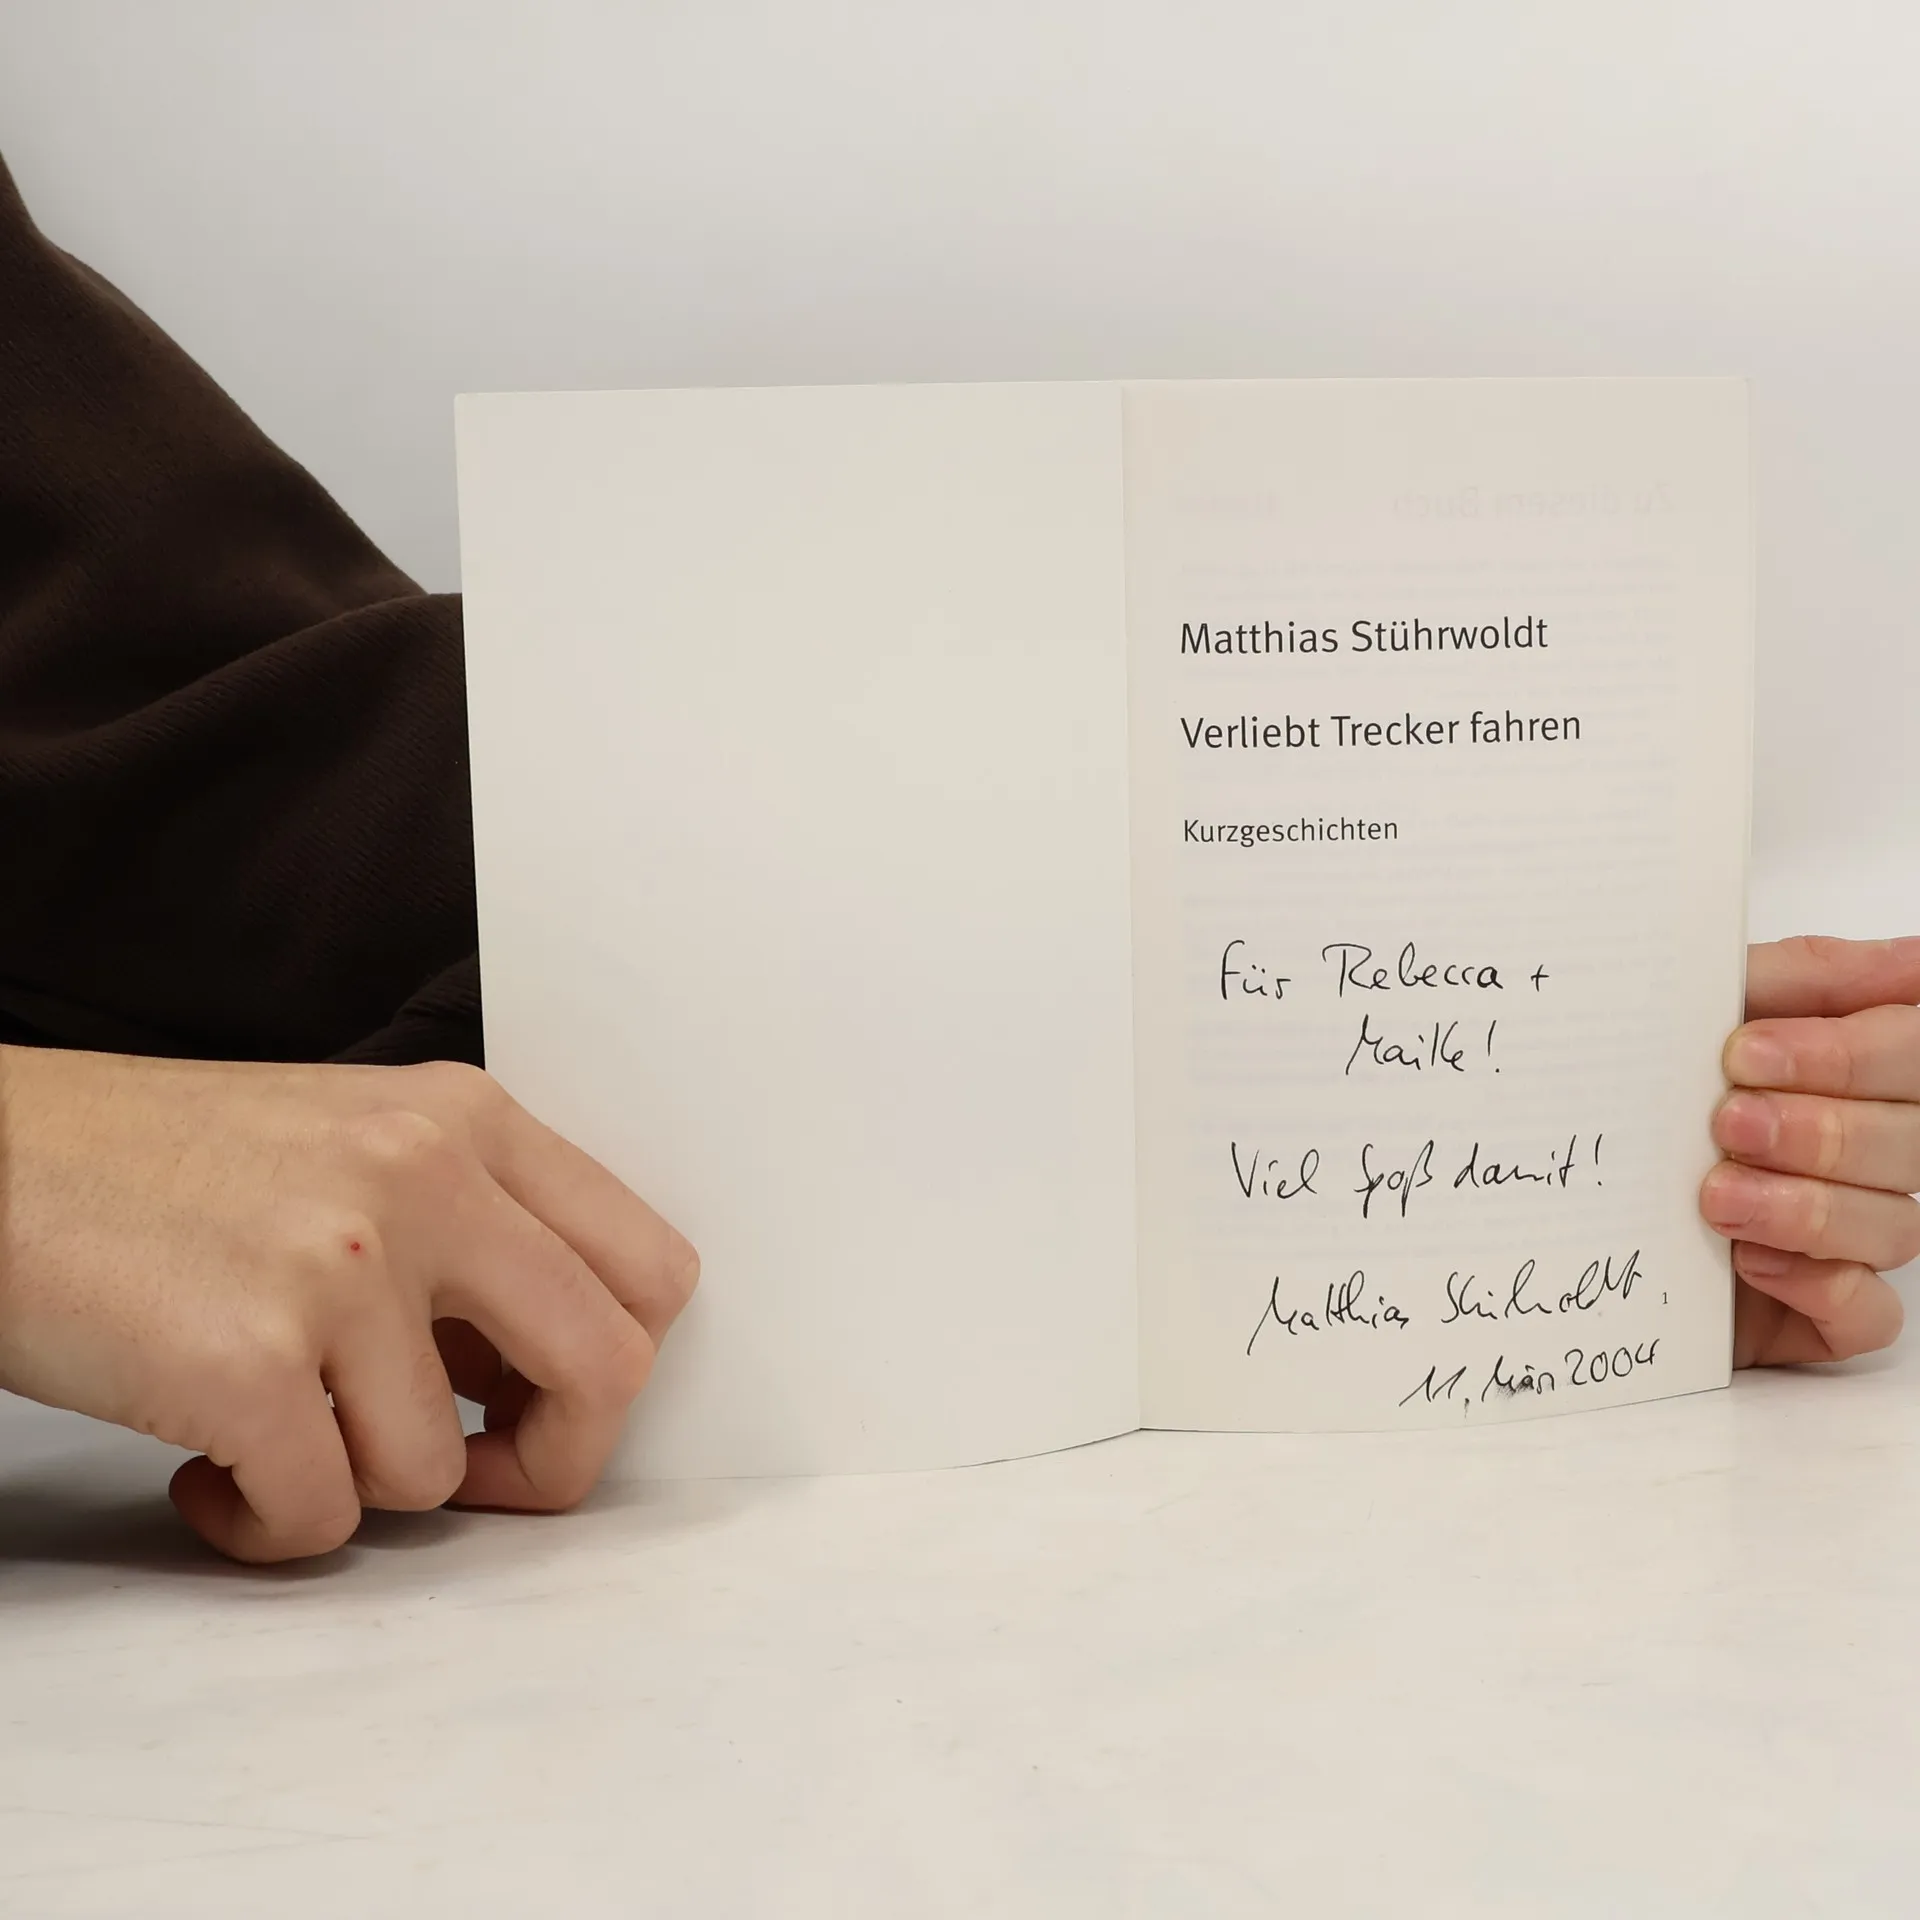 Zu diesem Buch
Matthias Stührwoldt
Verliebt Trecker fahren
Kurzgeschichten
Für Rebecca +
Maike!
Viel Spaß damit!
Matthias Stührwoldt
1
11. März 2004